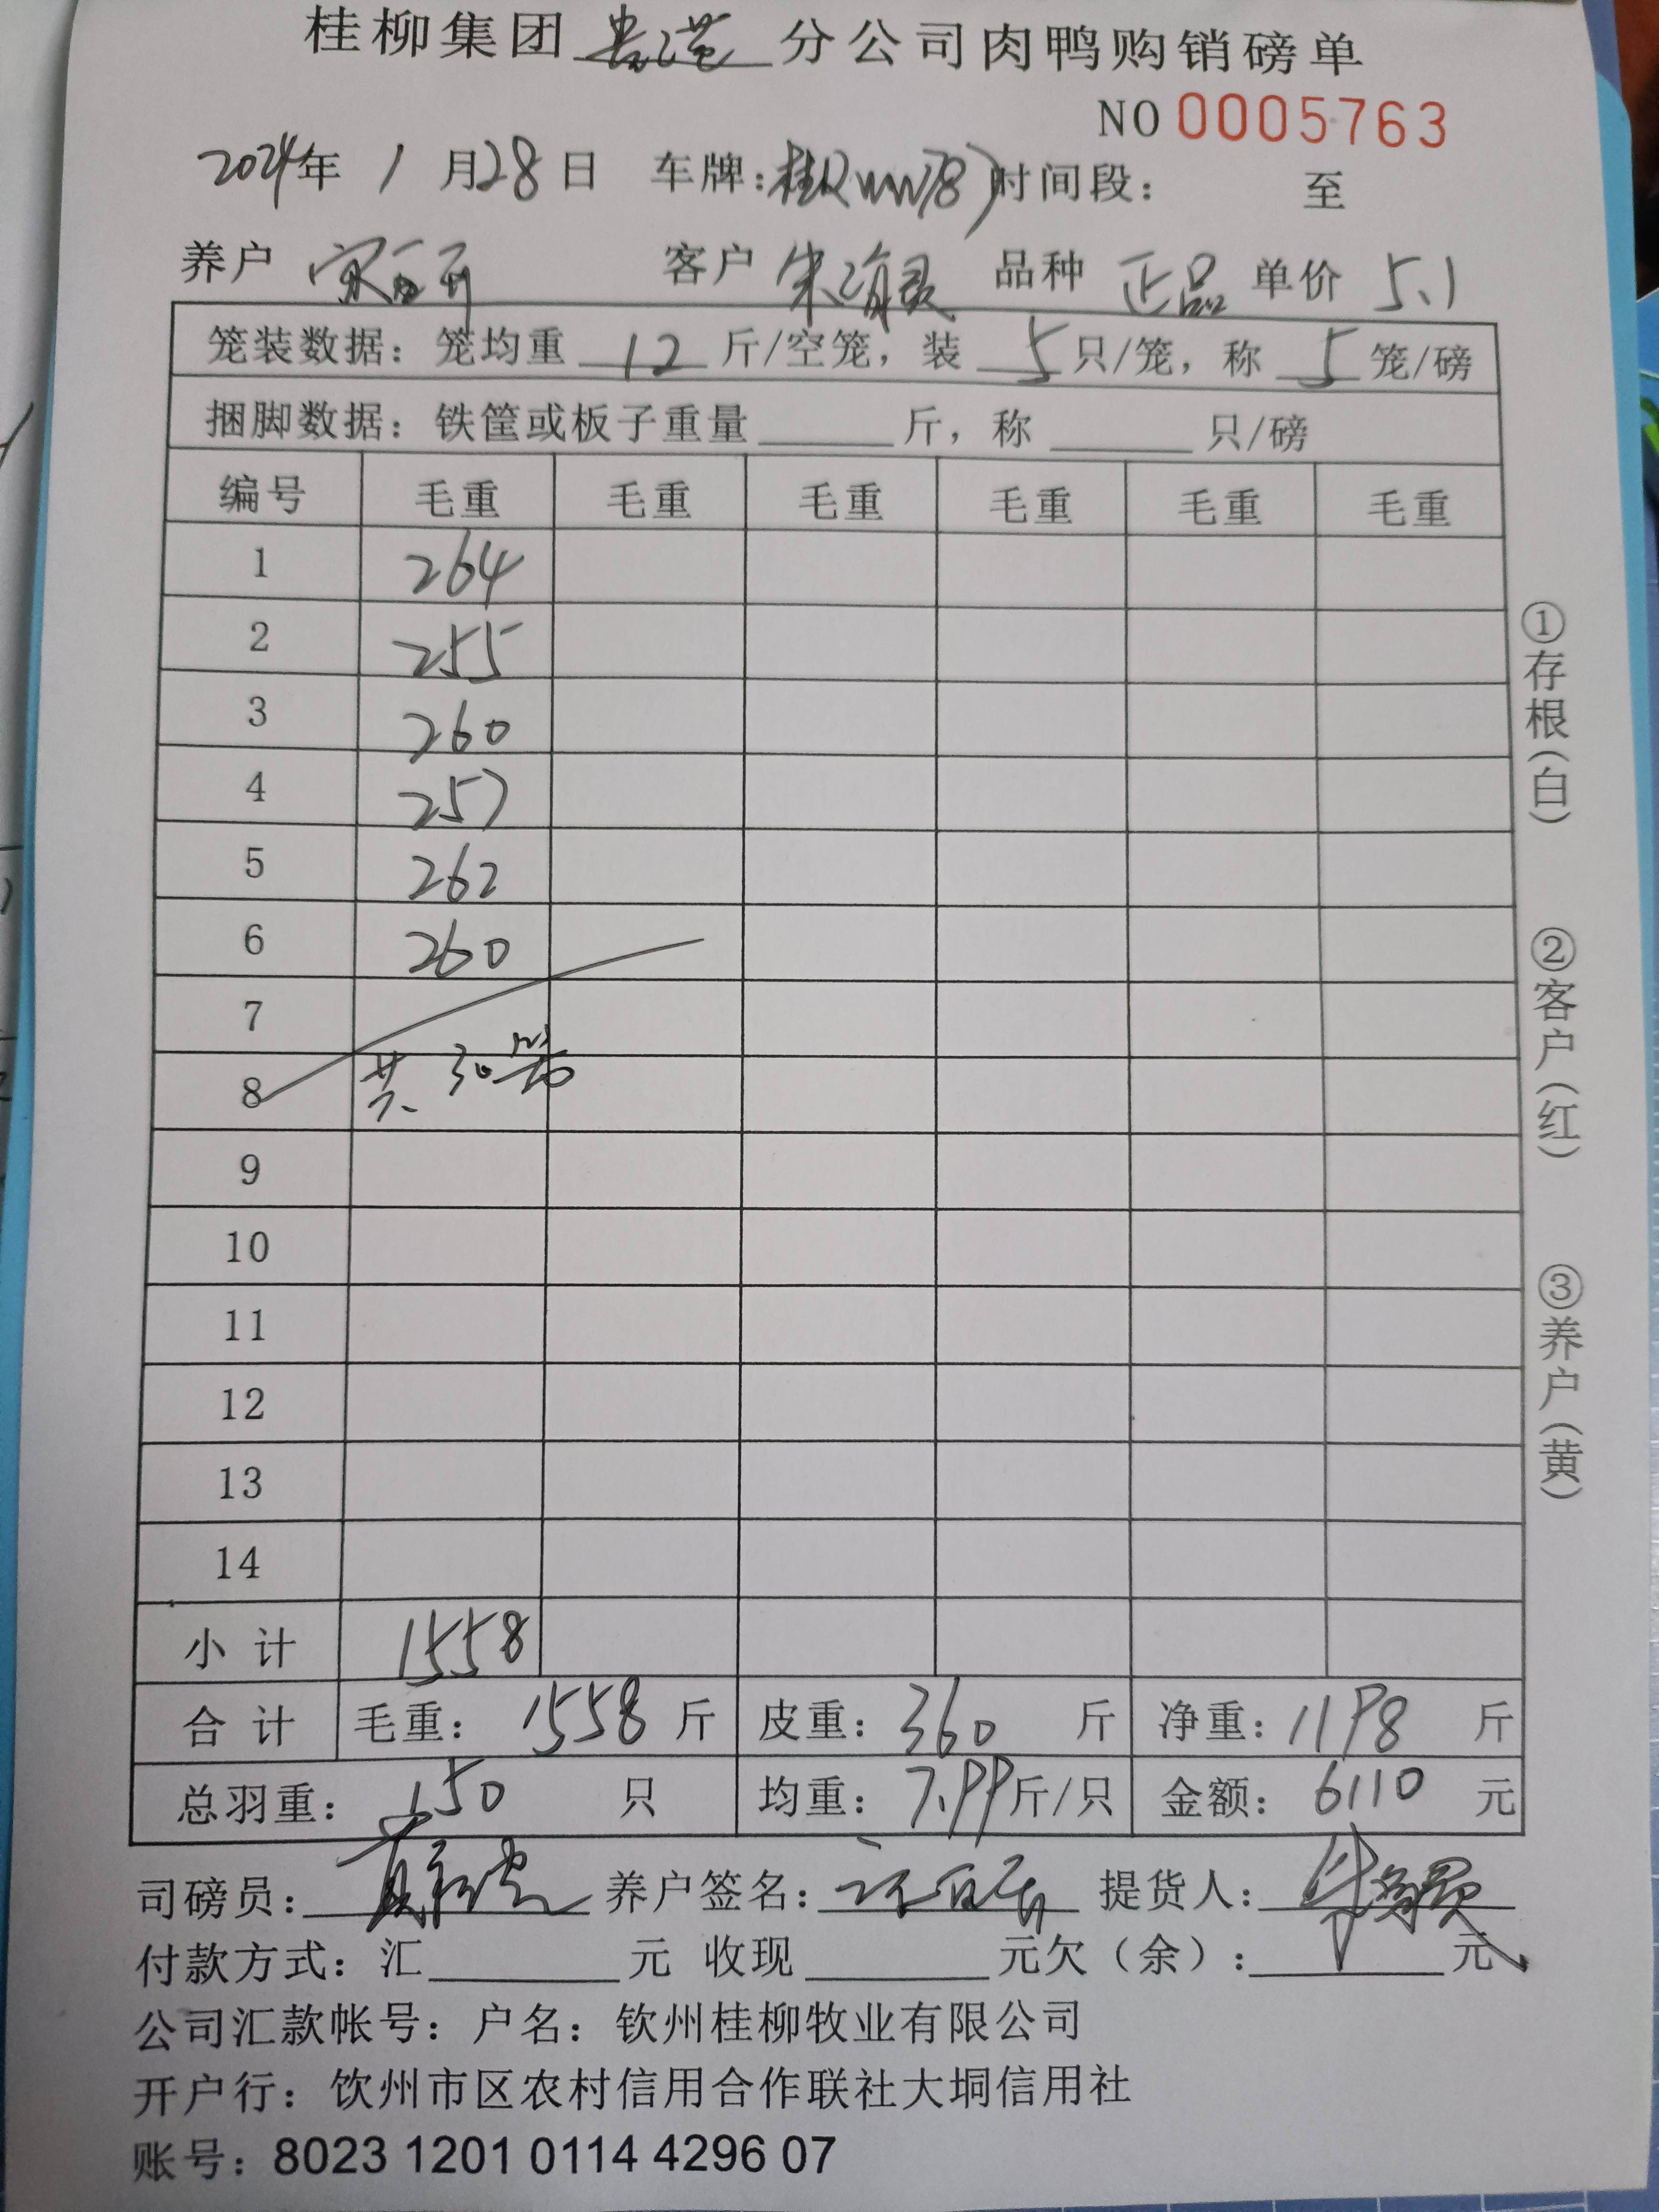 桂柳集团贵港分公司肉鸭购销磅单
NO 0005763
2024年 1月28日 车牌: 时间段: 至
养户 客户 朱 品种 正品 单价 5.1
笼装数据: 笼均重 12 斤/空笼, 装 5 只/笼, 称 5 笼/磅
捆脚数据: 铁筐或板子重量 斤, 称 只/磅
编号 毛重 毛重 毛重 毛重 毛重 毛重
1 264
2 255
3 260
4 257
5 262
6 260
7
8 共30笼
9
10
11
12
13
14
小计 1558
合计 毛重: 1558 斤 皮重: 360 斤 净重: 1198 斤
总羽重: 150 只 均重: 7.99斤/只 金额: 6110 元
司磅员: 养户签名: 提货人:
付款方式: 汇 元 收现 元欠(余): 元
公司汇款帐号: 户名: 钦州桂柳牧业有限公司
开户行: 钦州市区农村信用合作联社大垌信用社
账号: 8023 1201 0114 4296 07
①存根(白)
②客户(红)
③养户(黄)